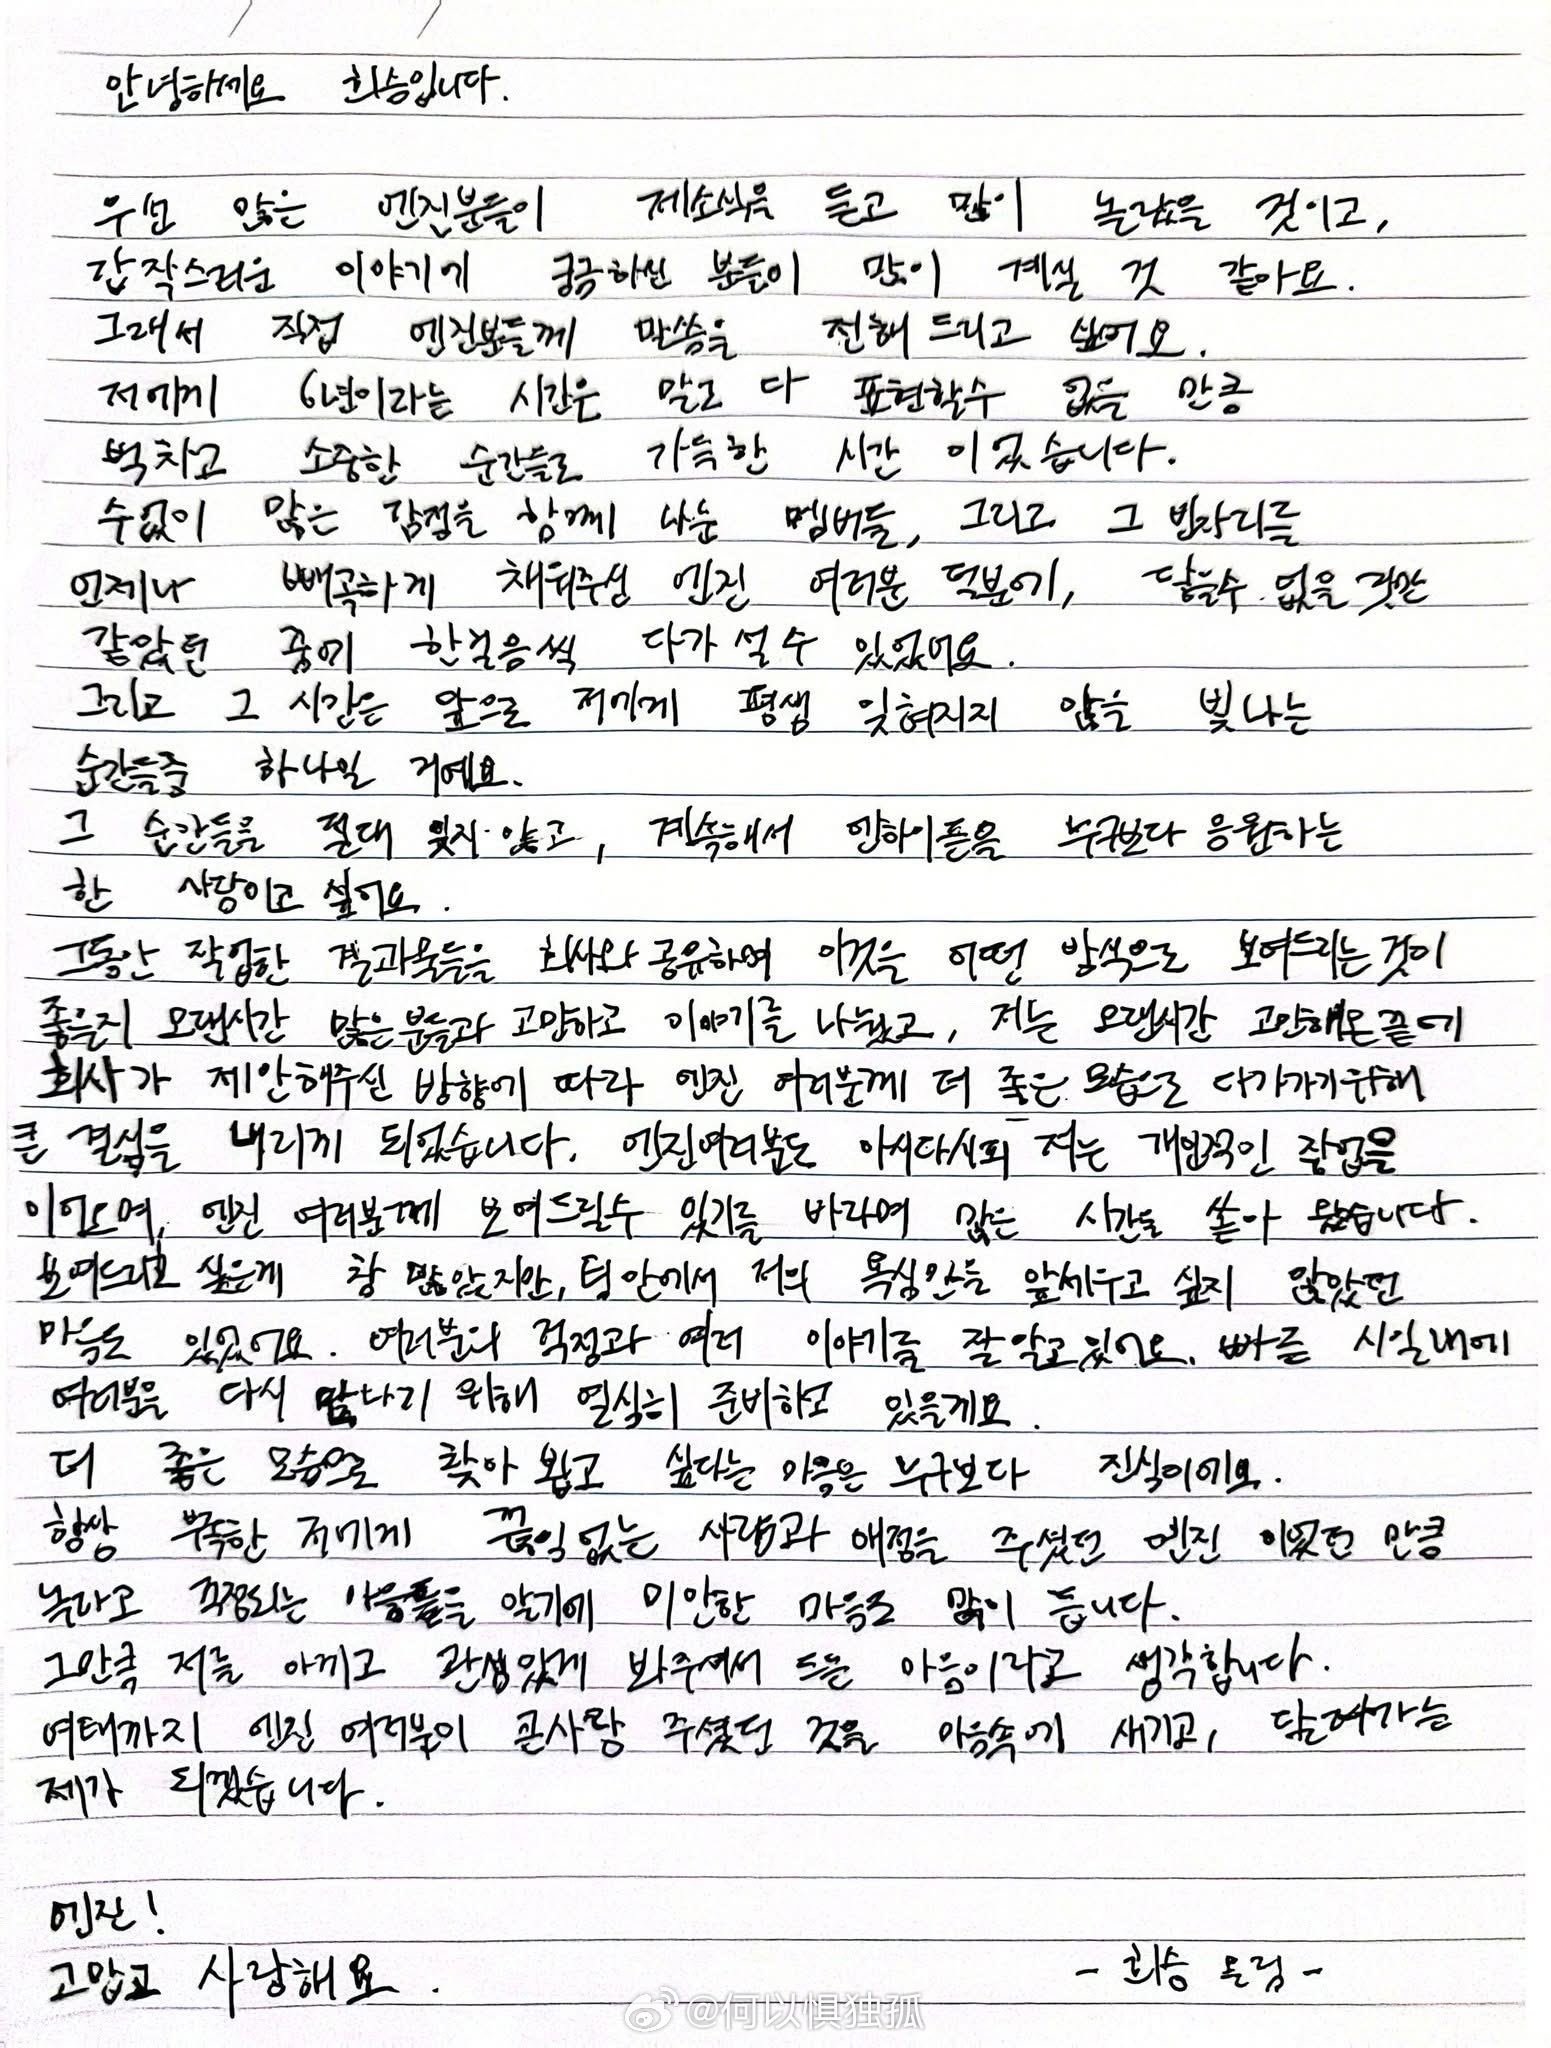 안녕하세요 희승입니다.
우선 많은 엔진분들이 제소식을 듣고 많이 놀랐을 것이고,
갑작스러운 이야기에 궁금하신 분들이 많이 계실 것 같아요.
그래서 직접 엔진분들께 말씀을 전해 드리고 싶어요.
저에게 6년이라는 시간은 말로 다 표현할수 없을 만큼
벅차고 소중한 순간들로 가득한 시간 이었습니다.
수없이 많은 감정을 함께 나눈 멤버들, 그리고 그 빈자리를
언제나 빼곡하게 채워주신 엔진 여러분 덕분에, 닿을수 없을 것만
같았던 꿈에 한걸음씩 다가 설 수 있었어요.
그리고 그 시간은 앞으로 저에게 평생 잊혀지지 않을 빛나는
순간들중 하나일 거예요.
그 순간들을 절대 잊지 않고, 계속해서 엔하이픈을 누구보다 응원하는
한 사람이고 싶어요.
그동안 작업한 결과물들을 회사와 공유하며 이것을 어떤 방식으로 보여드리는 것이
좋을지 오랜시간 많은 분들과 고민하고 이야기를 나눴고, 저는 오랜시간 고민해온 끝에
회사가 제안해주신 방향에 따라 엔진 여러분께 더 좋은 모습으로 다가가기위해
큰 결심을 내리게 되었습니다. 엔진여러분도 아시다시피 저는 개인적인 작업을
이어오며, 엔진 여러분께 보여드릴수 있기를 바라며 많은 시간을 쏟아 왔습니다.
보여드리고 싶은게 참 많았지만, 팀 안에서 저의 욕심만을 앞세우고 싶지 않았던
마음도 있었어요. 여러분의 걱정과 여러 이야기를 잘 알고있어요. 빠른 시일내에
여러분을 다시 만나기 위해 열심히 준비하고 있을게요.
더 좋은 모습으로 찾아 뵙고 싶다는 마음은 누구보다 진심이에요.
항상 부족한 저에게 끊임없는 사랑과 애정을 주셨던 엔진 이었던 만큼
놀라고 걱정되는 마음들을 알기에 미안한 마음도 많이 듭니다.
그만큼 저를 아끼고 관심있게 봐주셔서 드는 마음이라고 생각합니다.
여태까지 엔진 여러분이 큰사랑 주셨던 것을 마음속에 새기고, 달려가는
제가 되겠습니다.
엔진!
고맙고 사랑해요.
- 희승 올림 -
@何以惧独孤